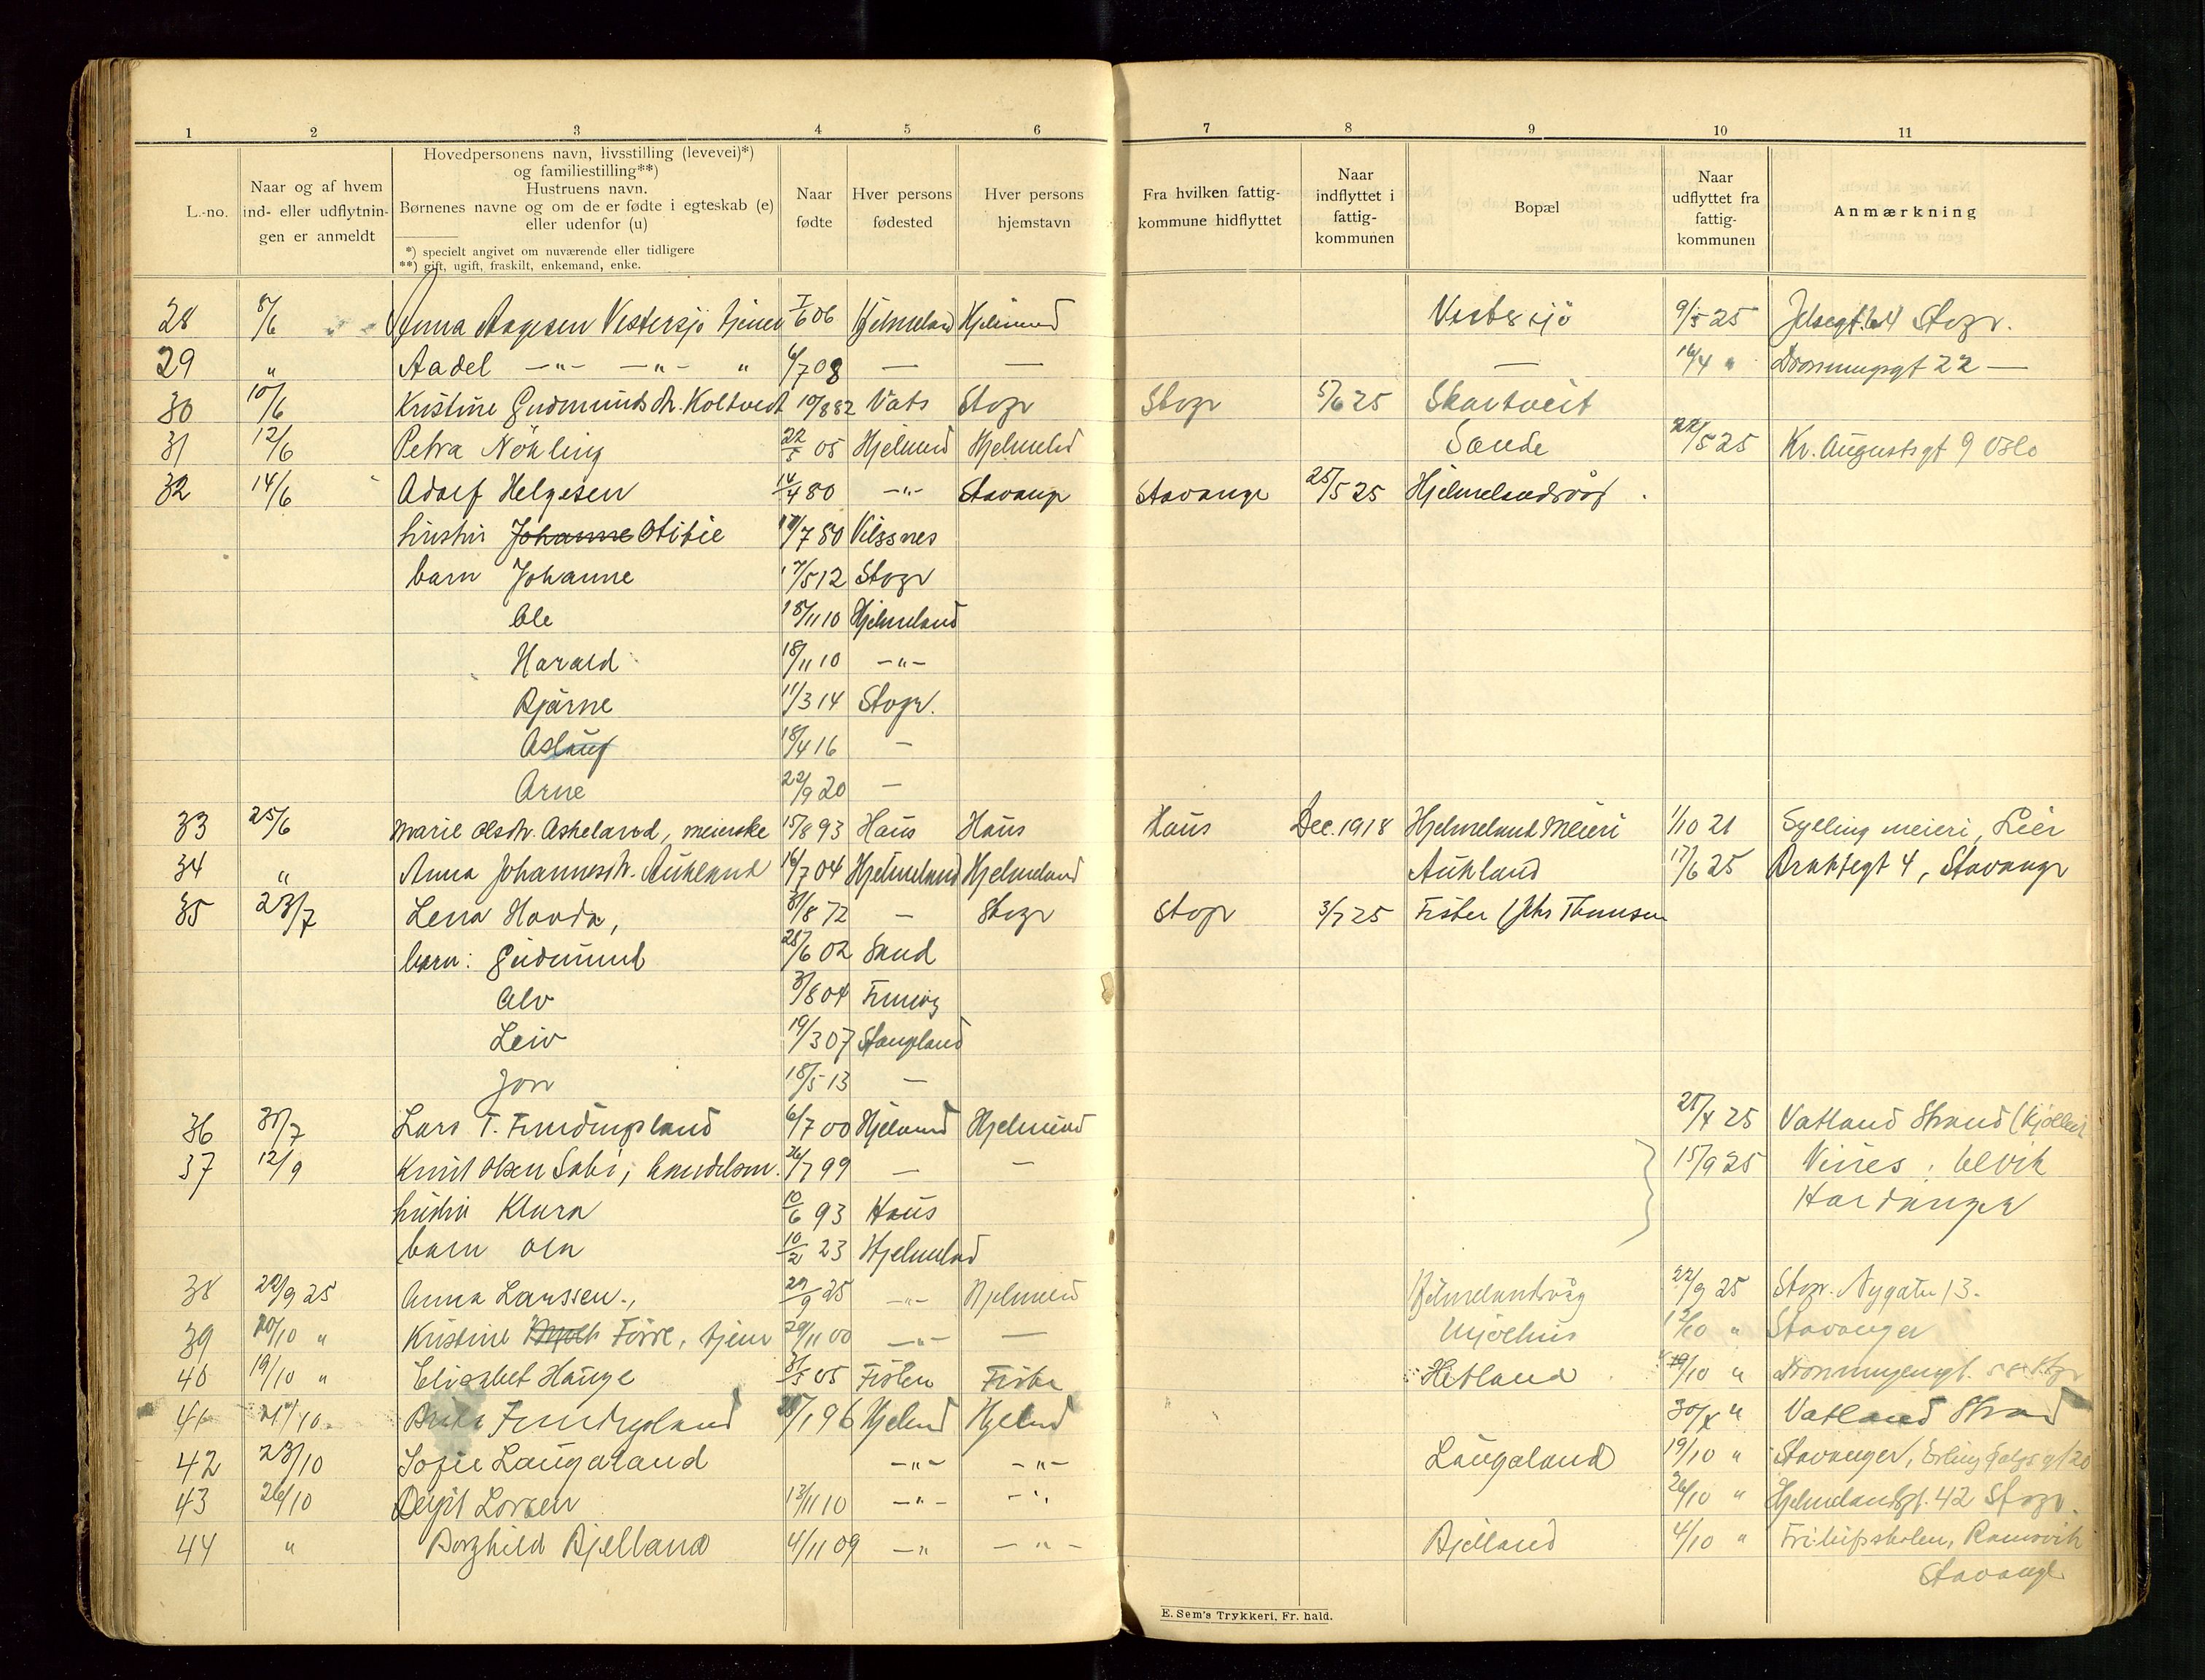 1 2 3 4 5 6 7 8 9 10 11
L.-no.
Naar og af hvem
ind- eller udflytnin-
gen er anmeldt
Hovedpersonens navn, livsstilling (levevei)*)
og familiestilling**)
Hustruens navn.
Børnenes navne og om de er fødte i egteskab (e)
eller udenfor (u)
*) specielt angivet om nuværende eller tidligere
**) gift, ugift, fraskilt, enkemand, enke.
Naar
fødte
Hver persons
fødested
Hver persons
hjemstavn
Fra hvilken fattig-
kommune hidflyttet
Naar
indflyttet i
fattig-
kommunen
Bopæl
Naar
udflyttet fra
fattig-
kommunen
Anmærkning
28 8/6 Anna Aagesen Vestersjø tjener 06 Hjelmeland Hjelmeland Vestersjö 9/5 25 Stvgr.
29 " Aadel —"— —"— " 6/7 08 — — — 16/4 " Dronningsgt 22 —
30 10/6 Kristine Gudmundsdr. Koltveit 19/8 82 Vats Stvgr Stvgr 5/6 25 Skartveit
31 12/6 Petra Nökling 22/5 05 Hjelmld Hjelmeld Sande 22/5 25 Kr. Augustsgt 9 Oslo
32 14/6 Adolf Helgesen 14/4 80 —"— Stavangr Stavangr 25/5 25 Hjelmelandsvåg
hustru Johanne Otitie 17/7 80 Vikssnes
barn Johanne 17/5 12 Stvgr
Ole 18/11 10 Hjelmeland
Harald 18/11 10 —"—
Bjarne 11/3 14 Stvgr.
Aslaug 18/4 16 —
Arne 22/9 20 —
33 25/6 Marie Olsdtr. Askeland, meierske 15/8 93 Haus Haus Haus Dec. 1918 Hjelmeland Meieri 1/10 21 Sylling meieri, Lier
34 " Anna Johannesdtr. Aukland 16/7 04 Hjelmeland Hjelmeland Aukland 17/6 25 4, Stavangr
35 23/7 Lena Hovda, 31/8 72 — Stvgr Stvgr 3/7 25 Fister (Jhs Thomsen
barn: Gudmund 28/6 02 Sand
Alv 3/8 04
Leiv 19/3 07 Stangland
Jon 18/5 13 —
36 31/7 Lars T. Fundingsland 6/7 00 Hjelmld Hjelmeld 25 Vatland Strand
37 12/9 Knut Olsen Sabi, handelsm. 26/7 99 — — 15/9 25 Vines, Ulvik
hustru Klara 10/6 93 Haus Hardanger
barn Ola 10/2 23 Hjelmeland
38 22/9 25 Anna Larssen., 25 —"— Hjelmeld Hjelmelandsvåg 22/9 25 Stvgr. Nygaten 13.
39 20/10 " Kristine Førre, tjener 29/11 00 —"— — Mjølhus 12/10 " Stavanger
40 19/10 " Elisabet Hauge 31/5 05 Fister Fister Hetland 19/10 " Dronningensgt. 58 Stvgr
41 21/10. Fundingsland 96 Hjelmld Hjelmld " Vatland Strand
42 23/10 Sofie Laugaland —"— —"— Laugaland 19/10 " Stavanger, Erling Skjalgs gt 20
43 26/10 Bergit Larsen 13/11 10 —"— —"— 26/10 " Hjelmelandsgt. 42 Stvgr.
44 " Borghild Bjelland 4/11 09 —" —"— Bjelland 4/10 " Ramsvik
Stavanger
E. Sem's Trykkeri, Fr. hald.